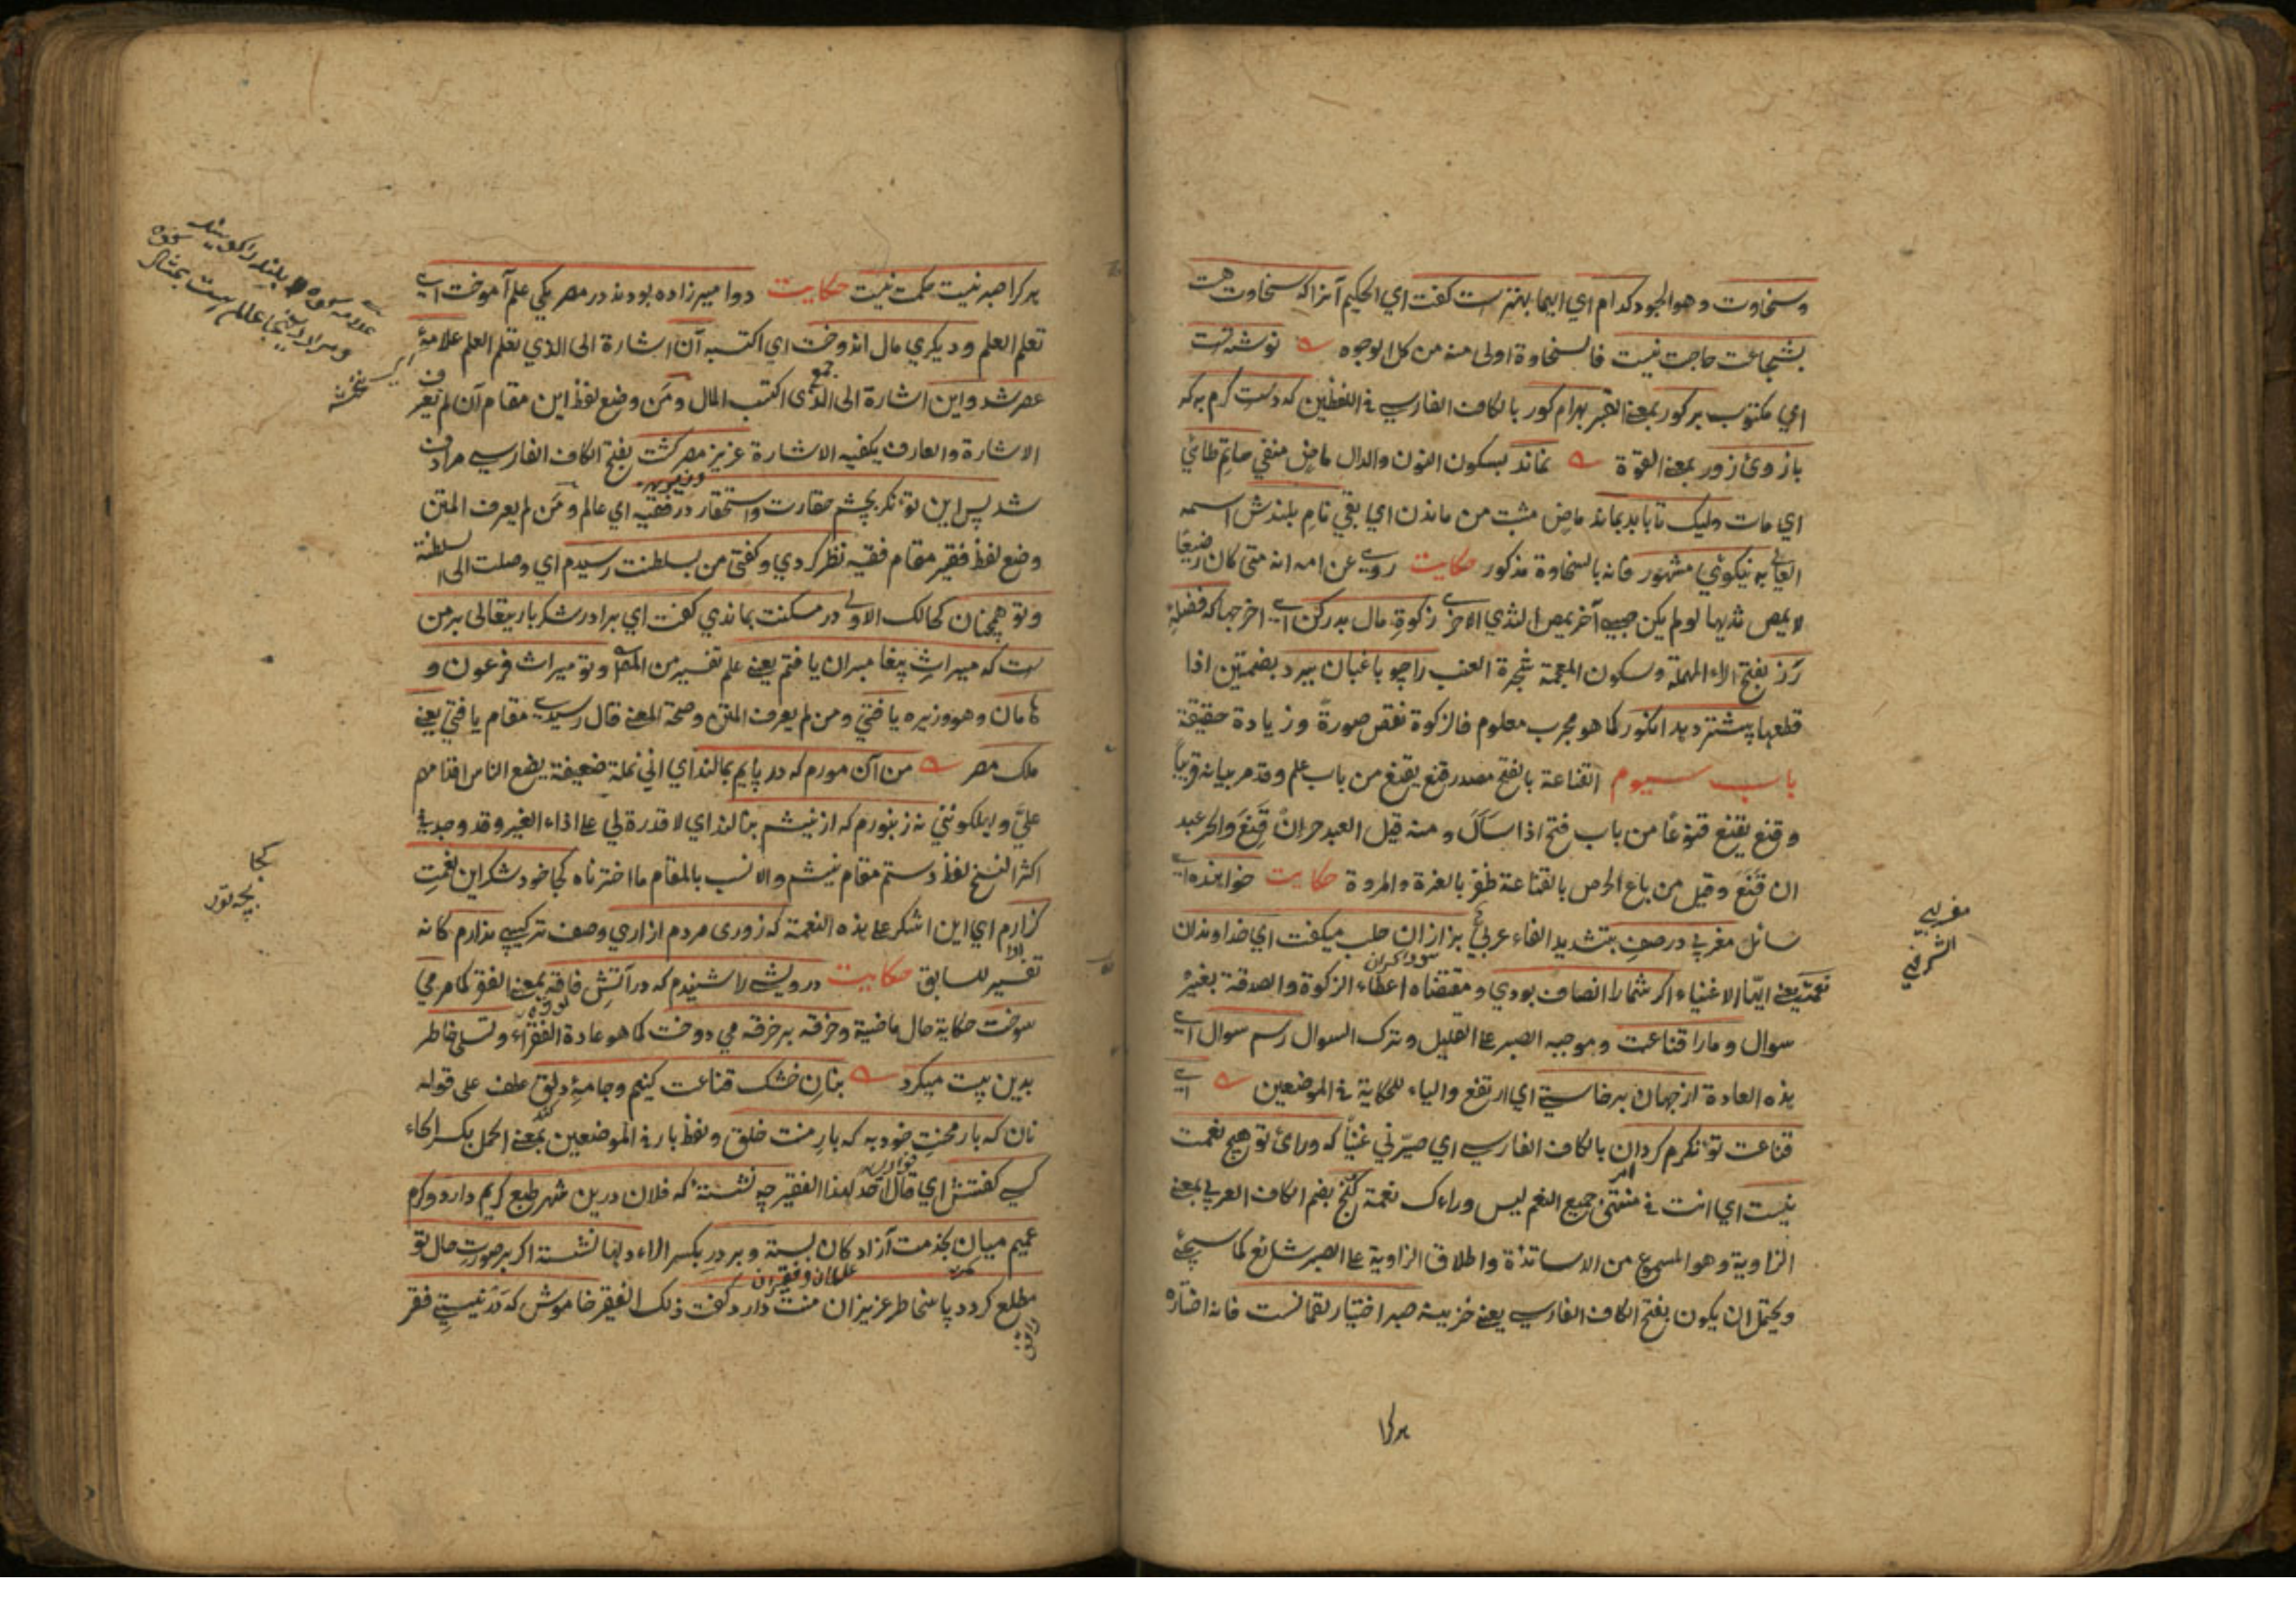 وسخاوت وهو الجود كدام اي ايهما بهترست كفت اي الحكيم آنرا كه سخاوت هست
بشجاعت حاجت نيست فالسخاوة اولى منه من كل الوجوه نوشته است
اي مكتوب بر كور بمعنى القبر بهرام كور بالكاف الفارسي في اللفظين كه دست كرم به كه
بازوئ زور بمعنى القوة نماند بسكون النون والدال ماض منفي حاتم طائي
اي مات وليك تا بابد بماند ماض مثبت من ماندن اي بقي نام بلندش اسمه
العالي به نيكوئي مشهور فانه بالسخاوة مذكور حكايت روي عن امه انه متى كان رضيعًا
لا يمص ثديها لو لم يكن صبي آخر يمص الثدي الاخرى زكوة مال بدر كن اي اخرجها كه فضله
رَز بفتح الراء المهملة وسكون المعجمة شجرة العنب را چو باغبان ببرد بضمتين اذا
قطعها پيشتر دهد انكور كما هو مجرب معلوم فالزكوة نقص صورةً وزيادة حقيقة
باب سيوم القناعة بالفتح مصدر قنع يقنع من باب علم وقد مر بيانه قريباً
وقنع يقنع قنوعًا من باب فتح اذا سأل ومنه قيل العبد حر ان قَنِعَ والحر عبد
ان قَنَعَ وقيل من باع الحرص بالقناعة ظفر بالعزة والمروة حكايت خواهنده اي
سائل مغربي در صف بتشديد الفاء عربي بزازان حلب ميكفت اي خداوندان
سوداكران
نعمت يعني ايها الاغنياء اكر شما را انصاف بودي ومقتضاه اعطاء الزكوة والصدقة بغير
سوال وما را قناعت وموجبه الصبر على القليل وترك السوال رسم سوال اي
هذه العادة از جهان برخاستي اي ارتفع والياء للحكاية في الموضعين اي
قناعت توانكرم كردان بالكاف الفارسي اي صيّرني غنيًا كه ورائ تو هيچ نعمت
نيست اي انت في منتهى جميع النعم ليس وراءك نعمة كنج بضم الكاف العربي بمعنى
الزاوية وهو المسموع من الاساتذة واطلاق الزاوية على الصبر شائع كما سيجئ
ويحتمل ان يكون بفتح الكاف الفارسي يعني خزينة صبر اختيار لقمانست فانه اختاره
هر كرا
مغربي
هر كرا صبر نيست حكمت نيست حكايت دو امير زاده بودند در مصر يكي علم آموخت اي
تعلم العلم وديكري مال اندوخت اي اكتسب آن اشارة الى الذي تعلم العلم علامهٔ
عصر شد واين اشارة الى الذي اكتسب المال ومَن وضع لفظ اين مقام آن لم يعرف
جمع
الاشارة والعارف يكفيه الاشارة عزيز مصر كشت بفتح الكاف الفارسي مرادف
شد پس اين توانكر بچشم حقارت واستحقار در فقيه اي عالم ومَن لم يعرف المتن
وضع لفظ فقير مقام فقيه نظر كردي وكفتي من بسلطنت رسيدم اي وصلت الى السلطنة
وتو همچنان كحالك الاولى در مسكنت بماندي كفت اي برادر شكر باريتعالى بر من
ست كه ميراثِ پيغامبران يافتم يعني علم تفسير من المقام وتو ميراث فرعون و
هامان وهو وزيره يافتي ومن لم يعرف المتن وصحة المعنى قال رسيدي مقام يافتي يعني
ملك مصر من آن مورم كه در پايم بمالند اي اني نملة ضعيفة يضع الناس اقدامهم
عليَّ ويهلكونني نه زنبورم كه از نيشم بنالند اي لا قدرة لي على اذاء الغير وقد وجد في
اكثر النسخ لفظ دستم مقام نيشم والانسب بالمقام ما اخترناه كجا خود شكر اين نعمت
كزارم اي اين اشكر على هذه النعمة كه زورى مردم ازاري وصف تركيبي ندارم كانه
تفسير للسابق حكايت درويشي را شنيدم كه در آتشِ فاقه بمعنى الفقر كما مر مي
سوخت حكاية حال ماضية وخرقه بر خرقه مي دوخت كما هو عادة الفقرآء وتسلى خاطر
بدين بيت ميكرد بنانِ خشك قناعت كنيم وجامهٔ دلق عطف على قوله
نان كه بار محنتِ خود به كه بارِ منت خلق ولفظ بار في الموضعين بمعنى الحمل بكسر الحاء
كسي كفتش اي قال احد لهذا الفقير چه نشستهٔ كه فلان درين شهر طبع كريم دارد وكرم
عميم ميان بخدمت آزادكان بسته وبر در بكسر الراء دلها نشسته اكر بر صورت حال تو
علمان وفقيران
مطلع كردد پاس خاطر عزيزان منت دارد كفت ذلك الفقير خاموش كه در نيستي فقر
كجا